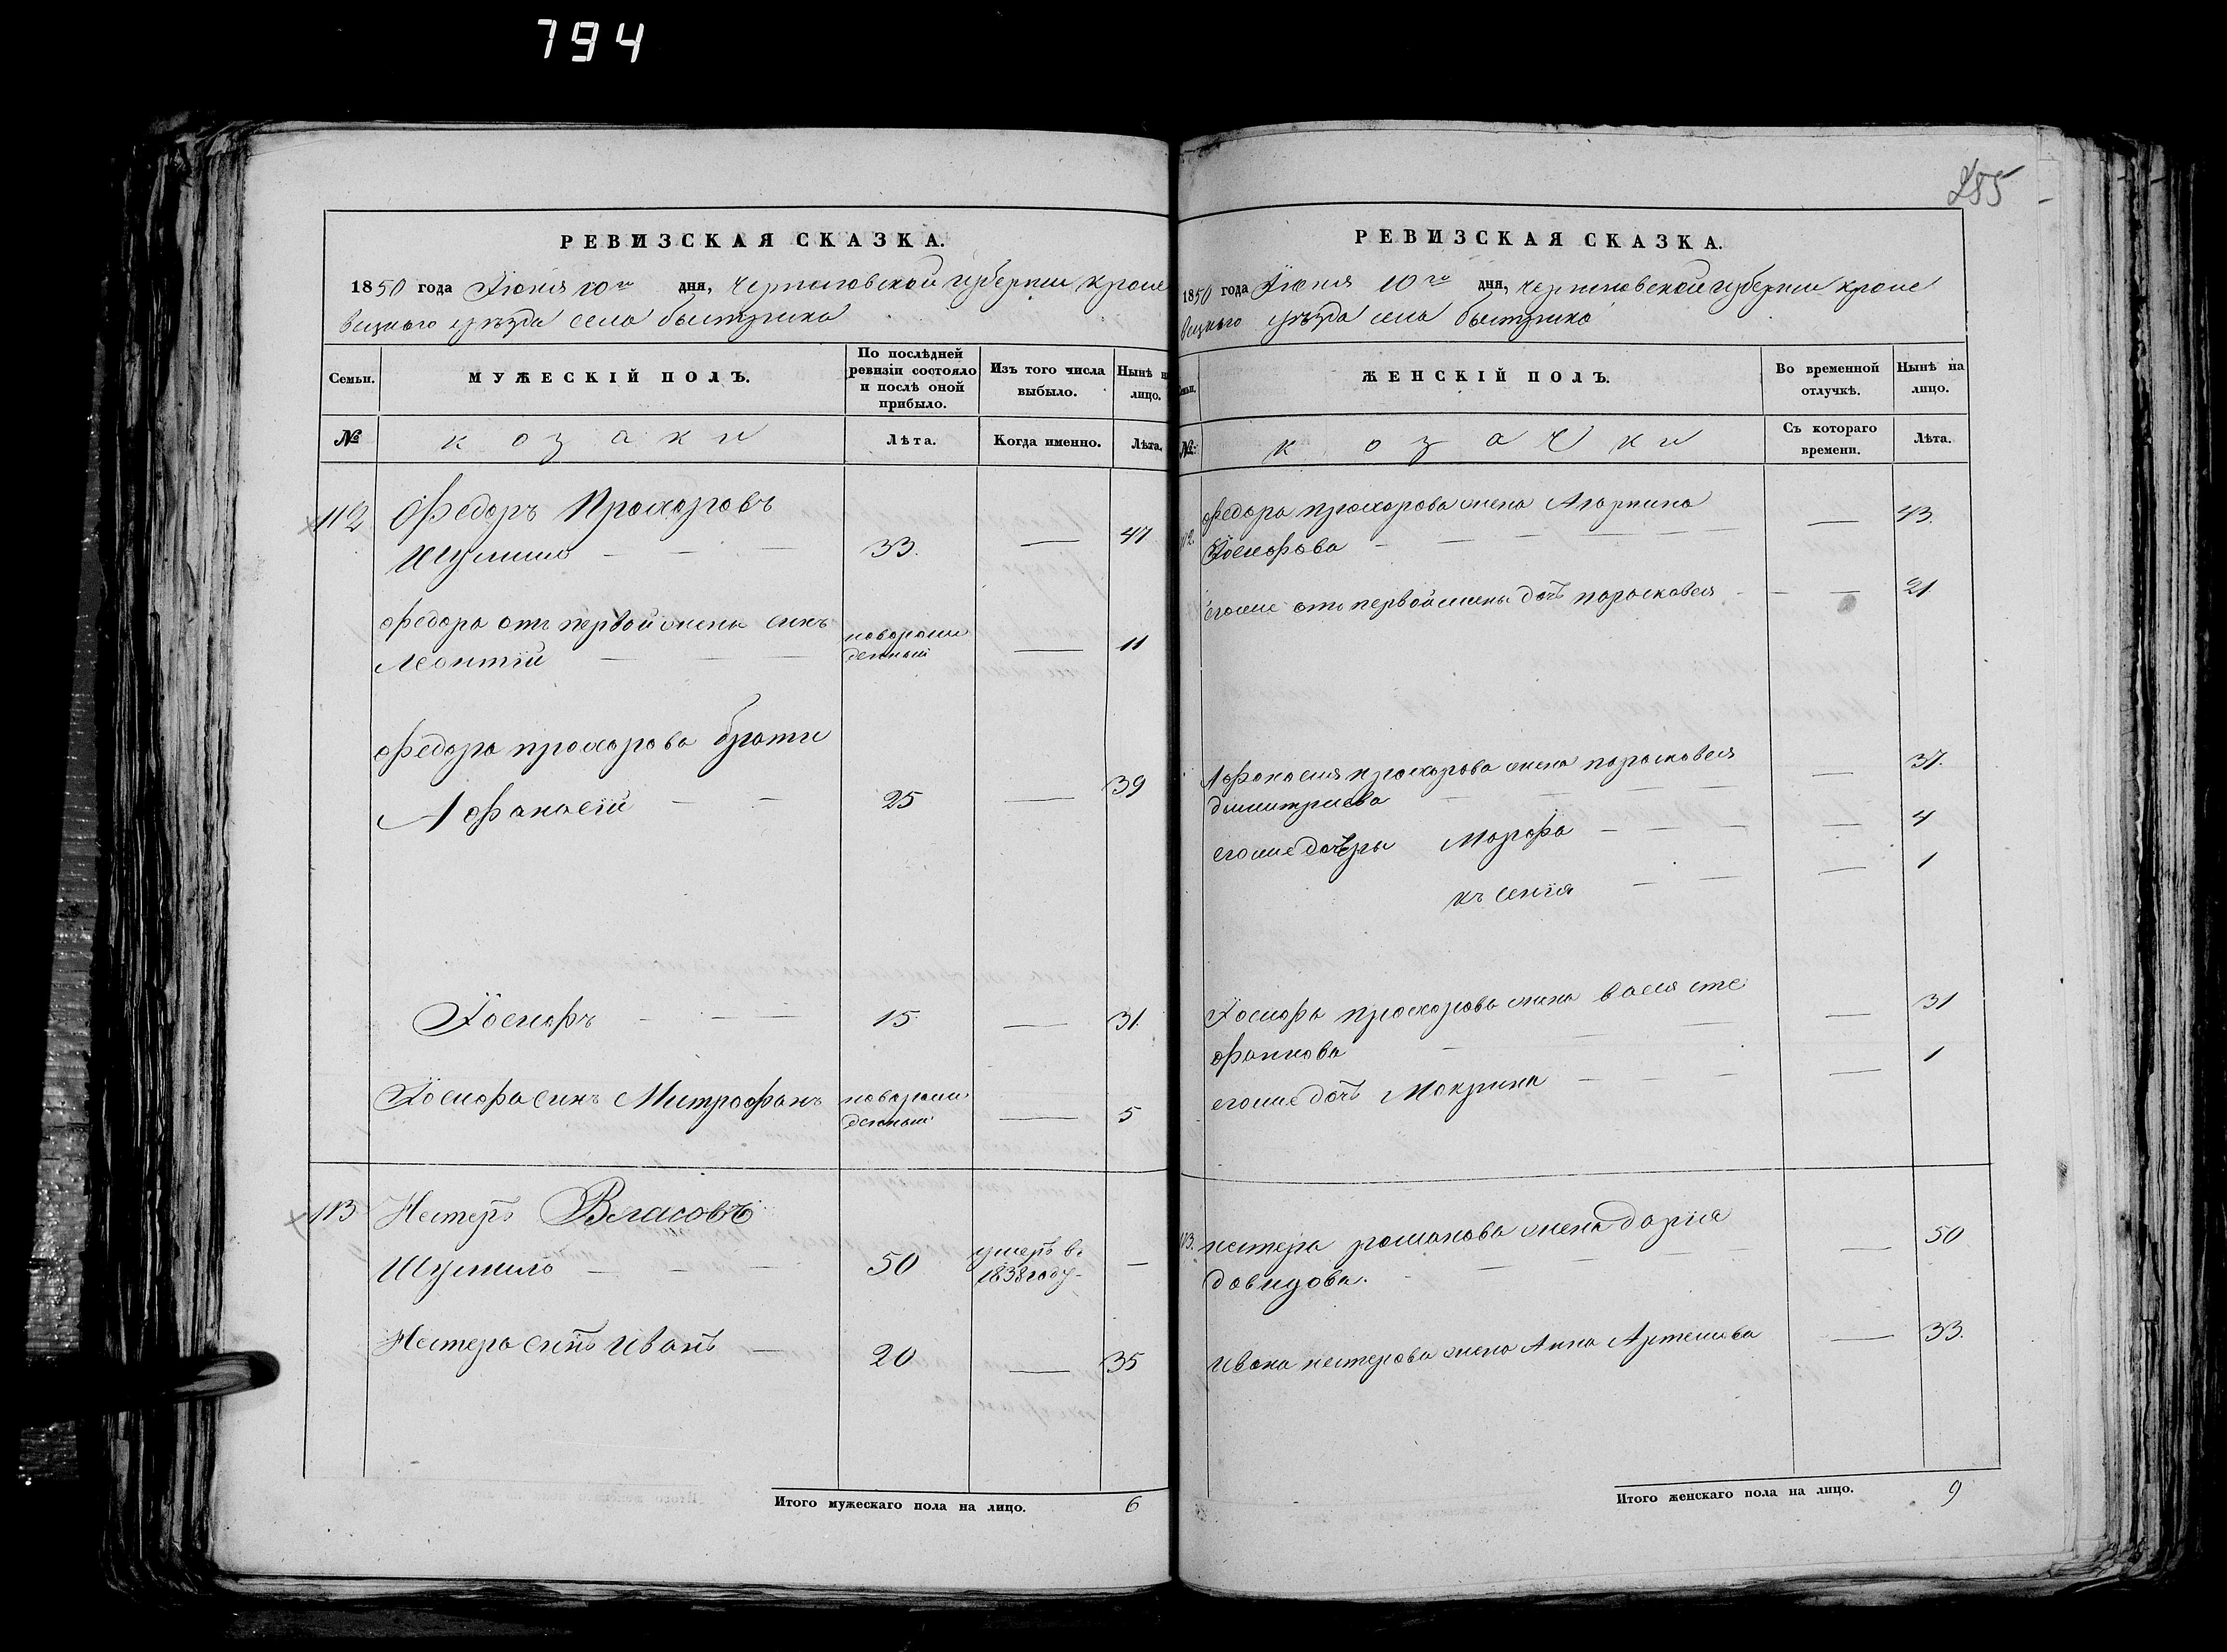 794
РЕВИЗСКАЯ СКАЗКА.
1850 года Іюня 10го дня, Черниговской губерніи Кроле
вецкаго уѣзда села быстрика
Семьи.
МУЖЕСКІЙ ПОЛЪ.
По послѣдней ревизіи состояло и послѣ оной прибыло.
Изъ того числа выбыло.
Нынѣ на лицо.
№
козаки
Лѣта.
Когда именно.
Лѣта.
112 Федоръ Прохоровъ
Шумило — — — 33. — 47
Федора отъ первой жены сынъ новорож
Леонтій — — — денный — 11
Федора прохорова брати
Афанасій — — 25 — 39
Іосифъ — — — 15 — 31.
Іосифа сынъ Митрофанъ новорож
денный — 5
113 Нестеръ Власовъ
Шумило — — — 50 умеръ въ 1838 году —
Нестера сынъ Иванъ — 20 — 35
Итого мужескаго пола на лицо. 6
285
РЕВИЗСКАЯ СКАЗКА.
1850 года Іюня 10го дня, Черниговской губерніи Кроле
вецкаго уѣзда села быстрика
Семьи.
ЖЕНСКІЙ ПОЛЪ.
Во временной отлучкѣ.
Нынѣ на лицо.
№
козачки
Съ котораго времени.
Лѣта.
112. Федора прохорова жена Агарпина — 43.
Іосифова — — — — —
егоже отъ первой жены дочь парасковея — — — 21
Афанасия прохорова жена парасковея — 37.
димитриева — — — —
егоже дочери Марфа — — — — 4
къ сенія — — — 1
Іосифа прохорова жена васса сте — 31
фанова — — —
егоже дочь Макрина — — — — 1
113. нестера романова жена дарія — 50
давидова. — — —
Ивана нестерова жена Анна Артемьева — 33.
Итого женскаго пола на лицо. 9